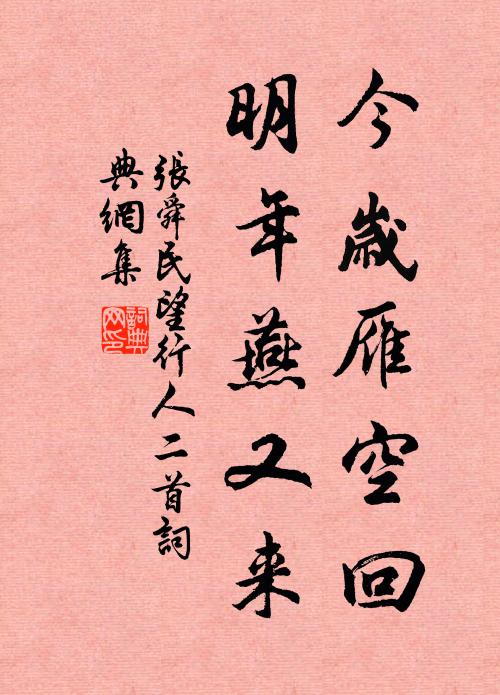 今歲雁空回
明年燕又来
張舜民望行人二首詞
典網集
詞典
网印